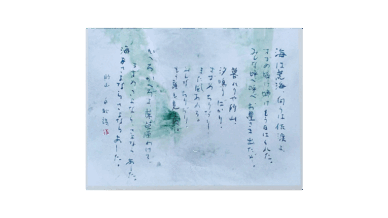 海は荒海 向うは佐渡よ
すずめ啼け啼け もう日はくれた
みんな呼べ呼べ お星さま出たぞ
暮れりゃ砂山
汐鳴りばかり
すずめちりぢり
また風荒れる
みんなちりぢり
もう誰も見えぬ
かえろかえろよ 茱萸原わけて
すずめさよなら さよなら あした
海よさよなら さよなら あした
砂山 白秋詩